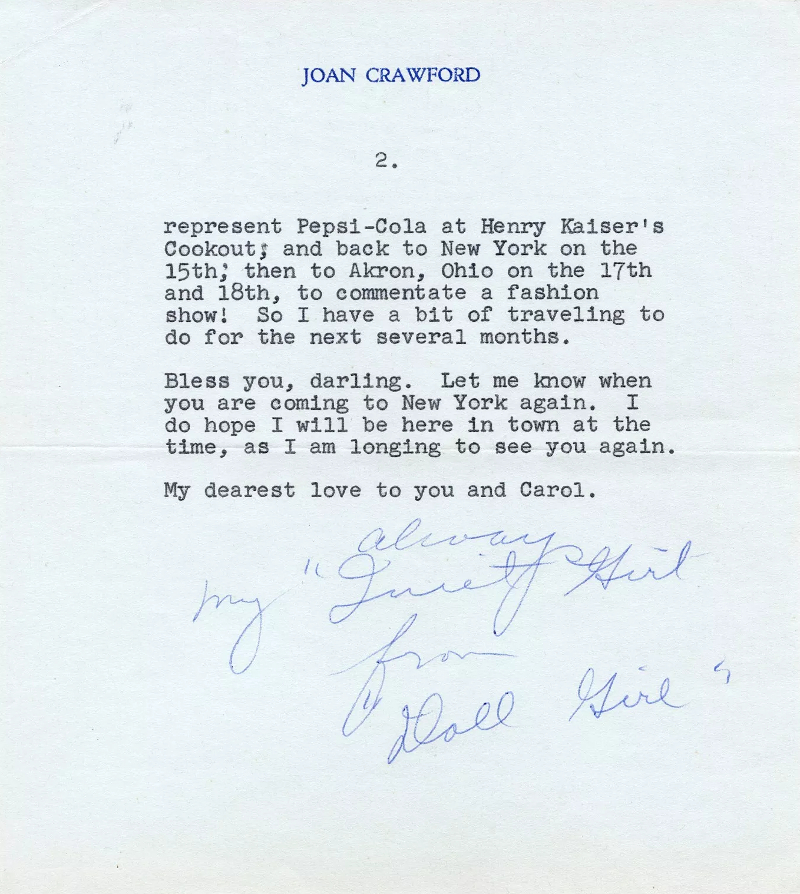 JOAN CRAWFORD
2.
represent Pepsi-Cola at Henry Kaiser's
Cookout; and back to New York on the
15th; then to Akron, Ohio on the 17th
and 18th, to commentate a fashion
show!  So I have a bit of traveling to
do for the next several months.
Bless you, darling.  Let me know when
you are coming to New York again.  I
do hope I will be here in town at the
time, as I am longing to see you again.
My dearest love to you and Carol.
always
my "Quiet Girl
from
"Doll Girl"